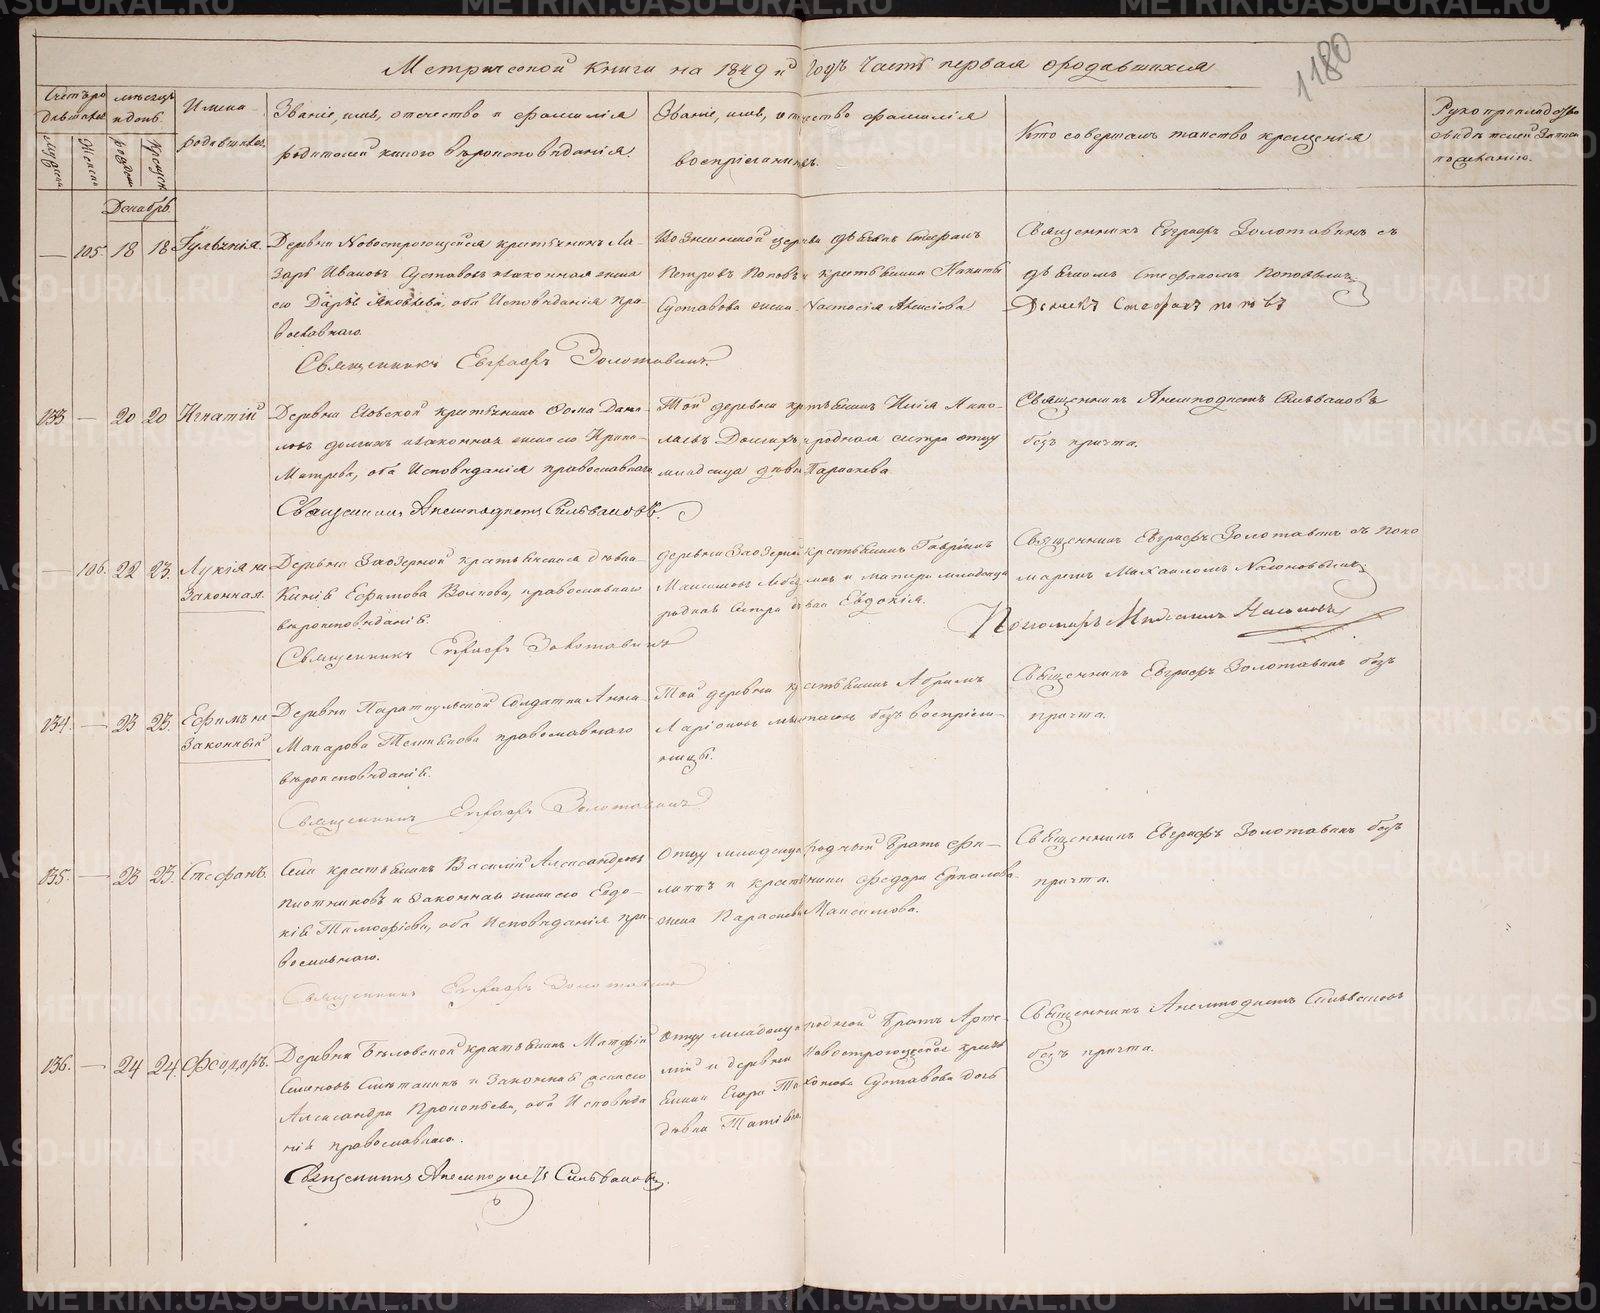 Метрической книги на 1849й годъ часть первая ородившихся
1180
Счетъ ро
дившихся
мужеска
женска
мѣсяцъ
и день.
рожден
крещен
Имена
родившихся.
Званіе, имя, отечество и фамилія
родителей какого вѣроисповѣданія.
Званіе, имя, отчество фамилія
воспріемниковъ.
Кто совершалъ таинство крещенія
Рукоприкладство
свидѣтелей записи
по желанію.
Декабрь
105. 18 18 Гуліанія.
Деревни Новостроющейся крестьянинъ Ла-
зарь Ивановъ Суставовъ и законная жена
его Дарья Яковлева, оба Исповѣданія пра-
вославнаго.
Священникъ Евграфъ Золотавинъ.
церкви дьячекъ Стефанъ
Петровъ Поповъ и крестьянина Никиты
Суставова жена Настасія Алексѣева
Священникъ Евграфъ Золотавинъ съ
дьячкомъ Стефаномъ Поповымъ
Дьячекъ Стефанъ Поповъ
133 — 20 20 Игнатій
Деревни крестьянинъ Фома Дани-
ловъ и законная жена его Ирина
Матвѣева, оба Исповѣданія православнаго
Священникъ Анемподистъ Сильвановъ.
Той деревни крестьянинъ Илія Нико-
лаевъ и родная сестра отцу
младенца дѣвка Парасковья
Священникъ Анемподистъ Сильвановъ
безъ причта.
— 106. 22 23. Лукія не
законная.
Деревни Заозерной крестьянская дѣвка
Ксенія Ефимова Волкова, православнаго
вѣроисповѣданія.
Священникъ Евграфъ Золотавинъ
деревни Заозерной крестьянинъ Гавріилъ
и матери младенца
родная сестра дѣвка Евдокія.
Священникъ Евграфъ Золотавинъ съ поно
маремъ Михаиломъ Насоновымъ.
Пономарь Михаилъ Насоновъ
134. — 23 23. Ефимъ не
законный
Деревни Параткульской Солдатка Анна
Макарова православнаго
вѣроисповѣданія.
Священникъ Евграфъ Золотавинъ
Той деревни крестьянинъ Абрамъ
Ларіоновъ безъ воспріем-
ницы.
Священникъ Евграфъ Золотавинъ безъ
причта.
135. — 23 23. Стефанъ.
Села крестьянинъ Василій Александровъ
Плотниковъ и законная жена его Евдо-
кія Тимофѣева, оба Исповѣданія пра-
вославнаго.
Священникъ Евграфъ Золотавинъ
Отцу младенца родный братъ Фи-
липпъ и крестьянина Федора Ермолова
жена Парасковья Максимова.
Священникъ Евграфъ Золотавинъ безъ
причта.
136. — 24 24. Феодоръ.
Деревни Бѣловской крестьянинъ Матфій
Семеновъ Сметанинъ и законная жена его
Александра Прокопьева, оба Исповѣда
нія православнаго.
Священникъ Анемподистъ Сильвановъ.
Отцу младенца родной братъ Арте-
мій и деревни Новостроющейся кресть
янина Егора Суставова дочь
дѣвка Татіана.
Священникъ Анемподистъ Сильвановъ
безъ причта.
METRIKI.GASO-URAL.RU